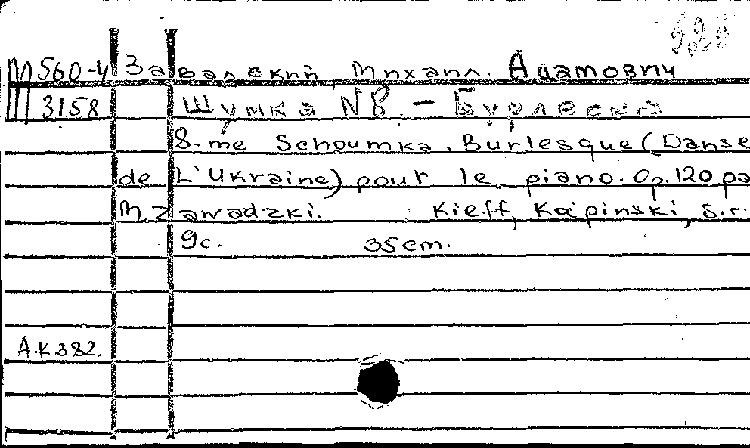 М 560-4 Завадский, Михаил. Адамович
3158 Шумка N8. – Бурлеска
8-me Schoumka, Burlesque (Danse
de L'Ukraine) pour le piano. Op. 120 pa
M. Zawadzki. Kieff, Kapinski, s.r.
9c. 35cm.
А.К 382.